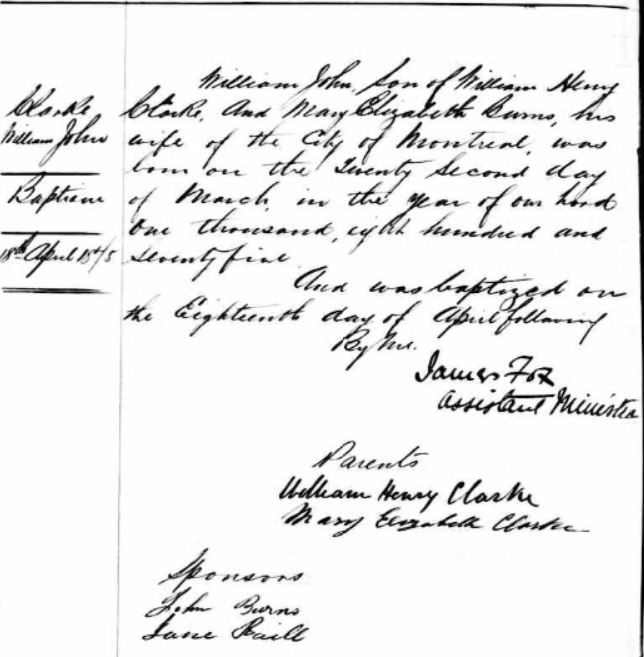 Clarke
William John
Baptism
18th April 1875
William John, Son of William Henry
Clarke, And Mary Elizabeth Burns, his
wife of the City of Montreal, was
born on the Twenty Second day
of March, in the year of our Lord
One thousand, eight hundred and
seventy five
And was baptized on
the Eighteenth day of April following
By Me.
James Fox
Assistant Minister
Parents
William Henry Clarke
Mary Elizabeth Clarke
Sponsors
John Burns
Jane